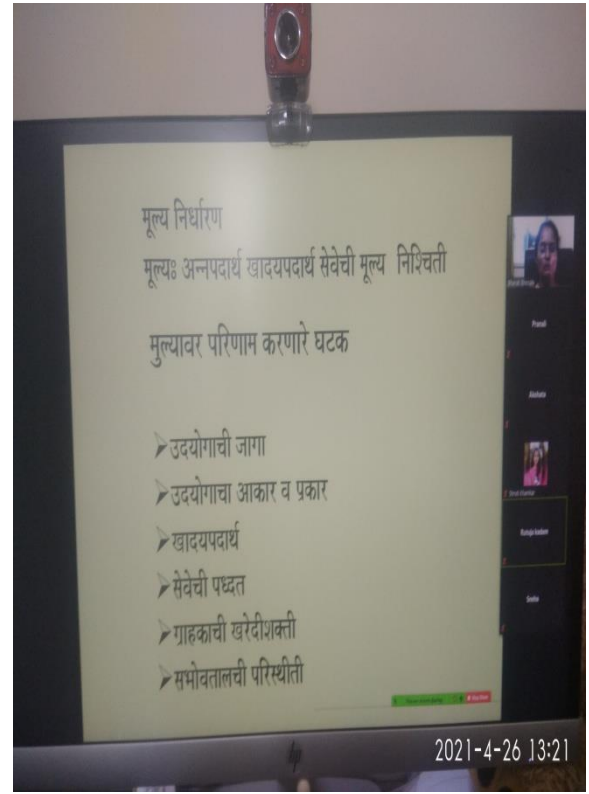 मूल्य निर्धारण
मूल्यः अन्नपदार्थ खादयपदार्थ सेवेची मूल्य निश्चिती
मुल्यावर परिणाम करणारे घटक
➢उदयोगाची जागा
➢उदयोगाचा आकार व प्रकार
➢खादयपदार्थ
➢सेवेची पध्दत
➢ग्राहकाची खरेदीशक्ती
➢सभोवतालची परिस्थीती
Pranali
Akshata
Rutuja kadam
Smita
hp
2021-4-26 13:21